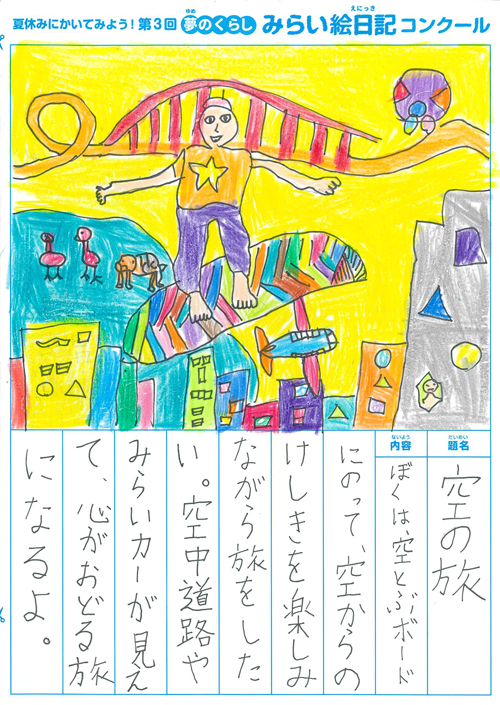 夏休みにかいてみよう！第3回 夢のくらし みらい絵日記コンクール
ゆめ
えにっき
だいめい
題名
空の旅
ないよう
内容
ぼくは空とぶボード
にのって、空からの
けしきを楽しみ
ながら旅をした
い。空中道路や
みらいカーが見え
て、心がおどる旅
になるよ。